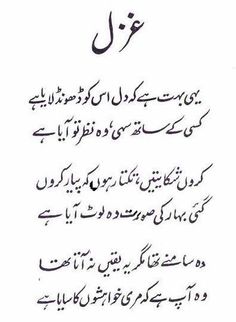 غزل
یہی بہت ہے کہ دل اس کو ڈھونڈ لایا ہے
کسی کے ساتھ سہی، وہ نظر تو آیا ہے
کروں شکایتیں، تکتا رہوں کہ پیار کروں
گئی بہار کی صورت وہ لوٹ آیا ہے
وہ سامنے تھا مگر یہ یقیں نہ آتا تھا
وہ آپ ہے کہ مری خواہشوں کا سایا ہے